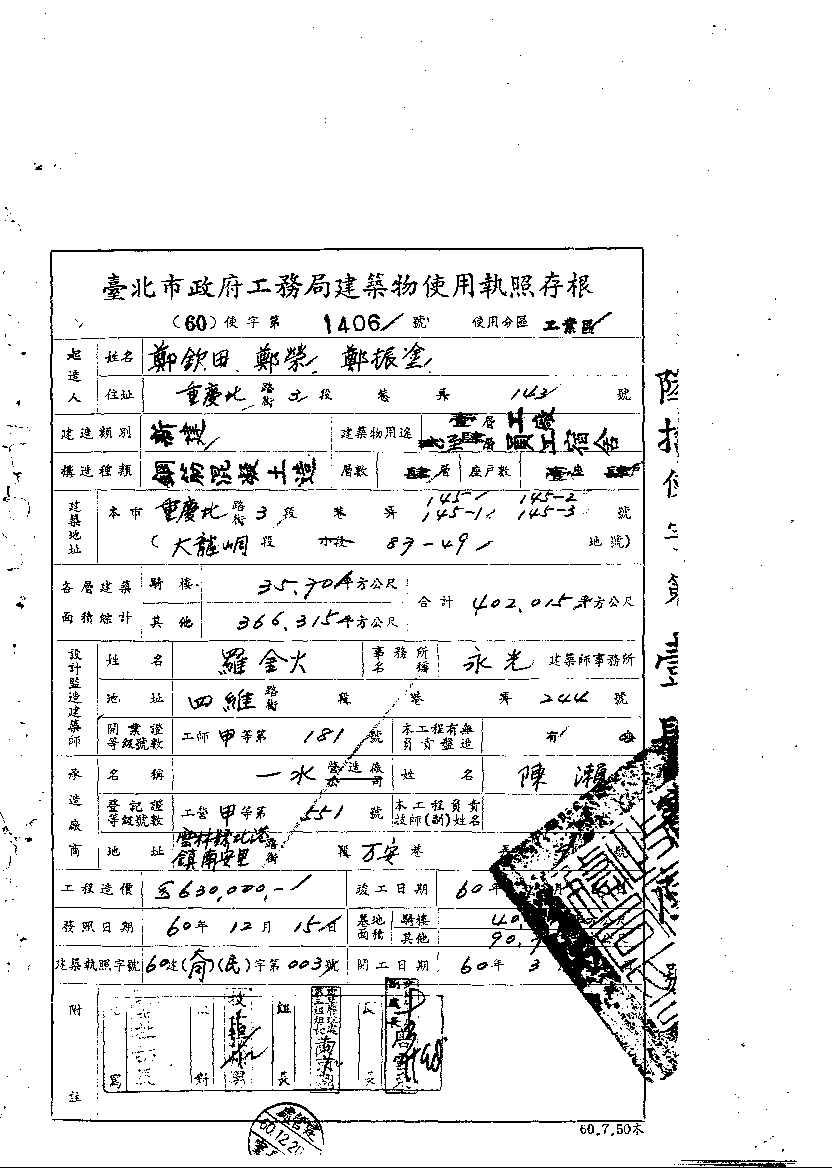 臺北市政府工務局建築物使用執照存根
(60)使字第 1406 號 使用分區 工業區
起造人 姓名 鄭欽田、鄭榮、鄭振塗
住址 重慶北路街 3 段 巷 弄 143 號
建造類別 新建 建築物用途 壹層工廠 貳至肆層員工宿舍
構造種類 鋼筋混凝土造 層數 肆層 座戶數 壹座 肆戶
建築地址 本市 重慶北路街 3 段 巷 弄 145 145-1 145-2 145-3 號
(大龍峒段 小段 83-49 地號)
各層建築面積綜計 騎樓 35.70平方公尺 合計 402.015平方公尺
其他 366.315平方公尺
設計監造建築師 姓名 羅金火 事務所名稱 永光 建築師事務所
地址 四維路街 段 巷 弄 244 號
開業證等級號數 工師 甲 等第 181 號 本工程有無負責監造 有
承造廠商 名稱 一水 營造廠公司 姓名 陳瀨
登記證等級號數 工營 甲 等第 551 號 本工程負責技師(副)姓名
地址 雲林縣北港鎮南安里 路街 段 万安巷 弄 號
工程造價 630,000,- 竣工日期 60年
發照日期 60年 12月 15日 基地面積 騎樓 40.
其他 90.
建築執照字號 60建( )(民)字第003號 開工日期 60年 3
附註
組長
60.12.20
60.7.50本
陸拾使字第壹